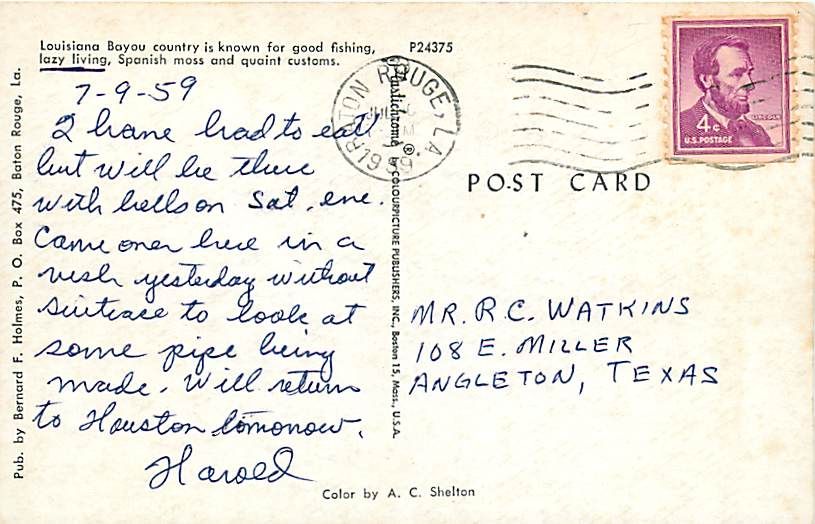 Louisiana Bayou country is known for good fishing,
lazy living, Spanish moss and quaint customs.
P24375
7-9-59
I have had to eat
but will be there
with bells on Sat. eve.
Came over here in a
rush yesterday without
suitcase to look at
some pipe being
made. Will return
to Houston tomorrow.
Harold
Pub. by Bernard F. Holmes, P. O. Box 475, Baton Rouge, La.
Plastichrome ® by COLOURPICTURE PUBLISHERS, INC., Boston 15, Mass., U.S.A.
BATON ROUGE, LA.
JUL
M
1959
LINCOLN
4¢
U.S. POSTAGE
POST CARD
MR. R.C. WATKINS
108 E. MILLER
ANGLETON, TEXAS
Color by A. C. Shelton